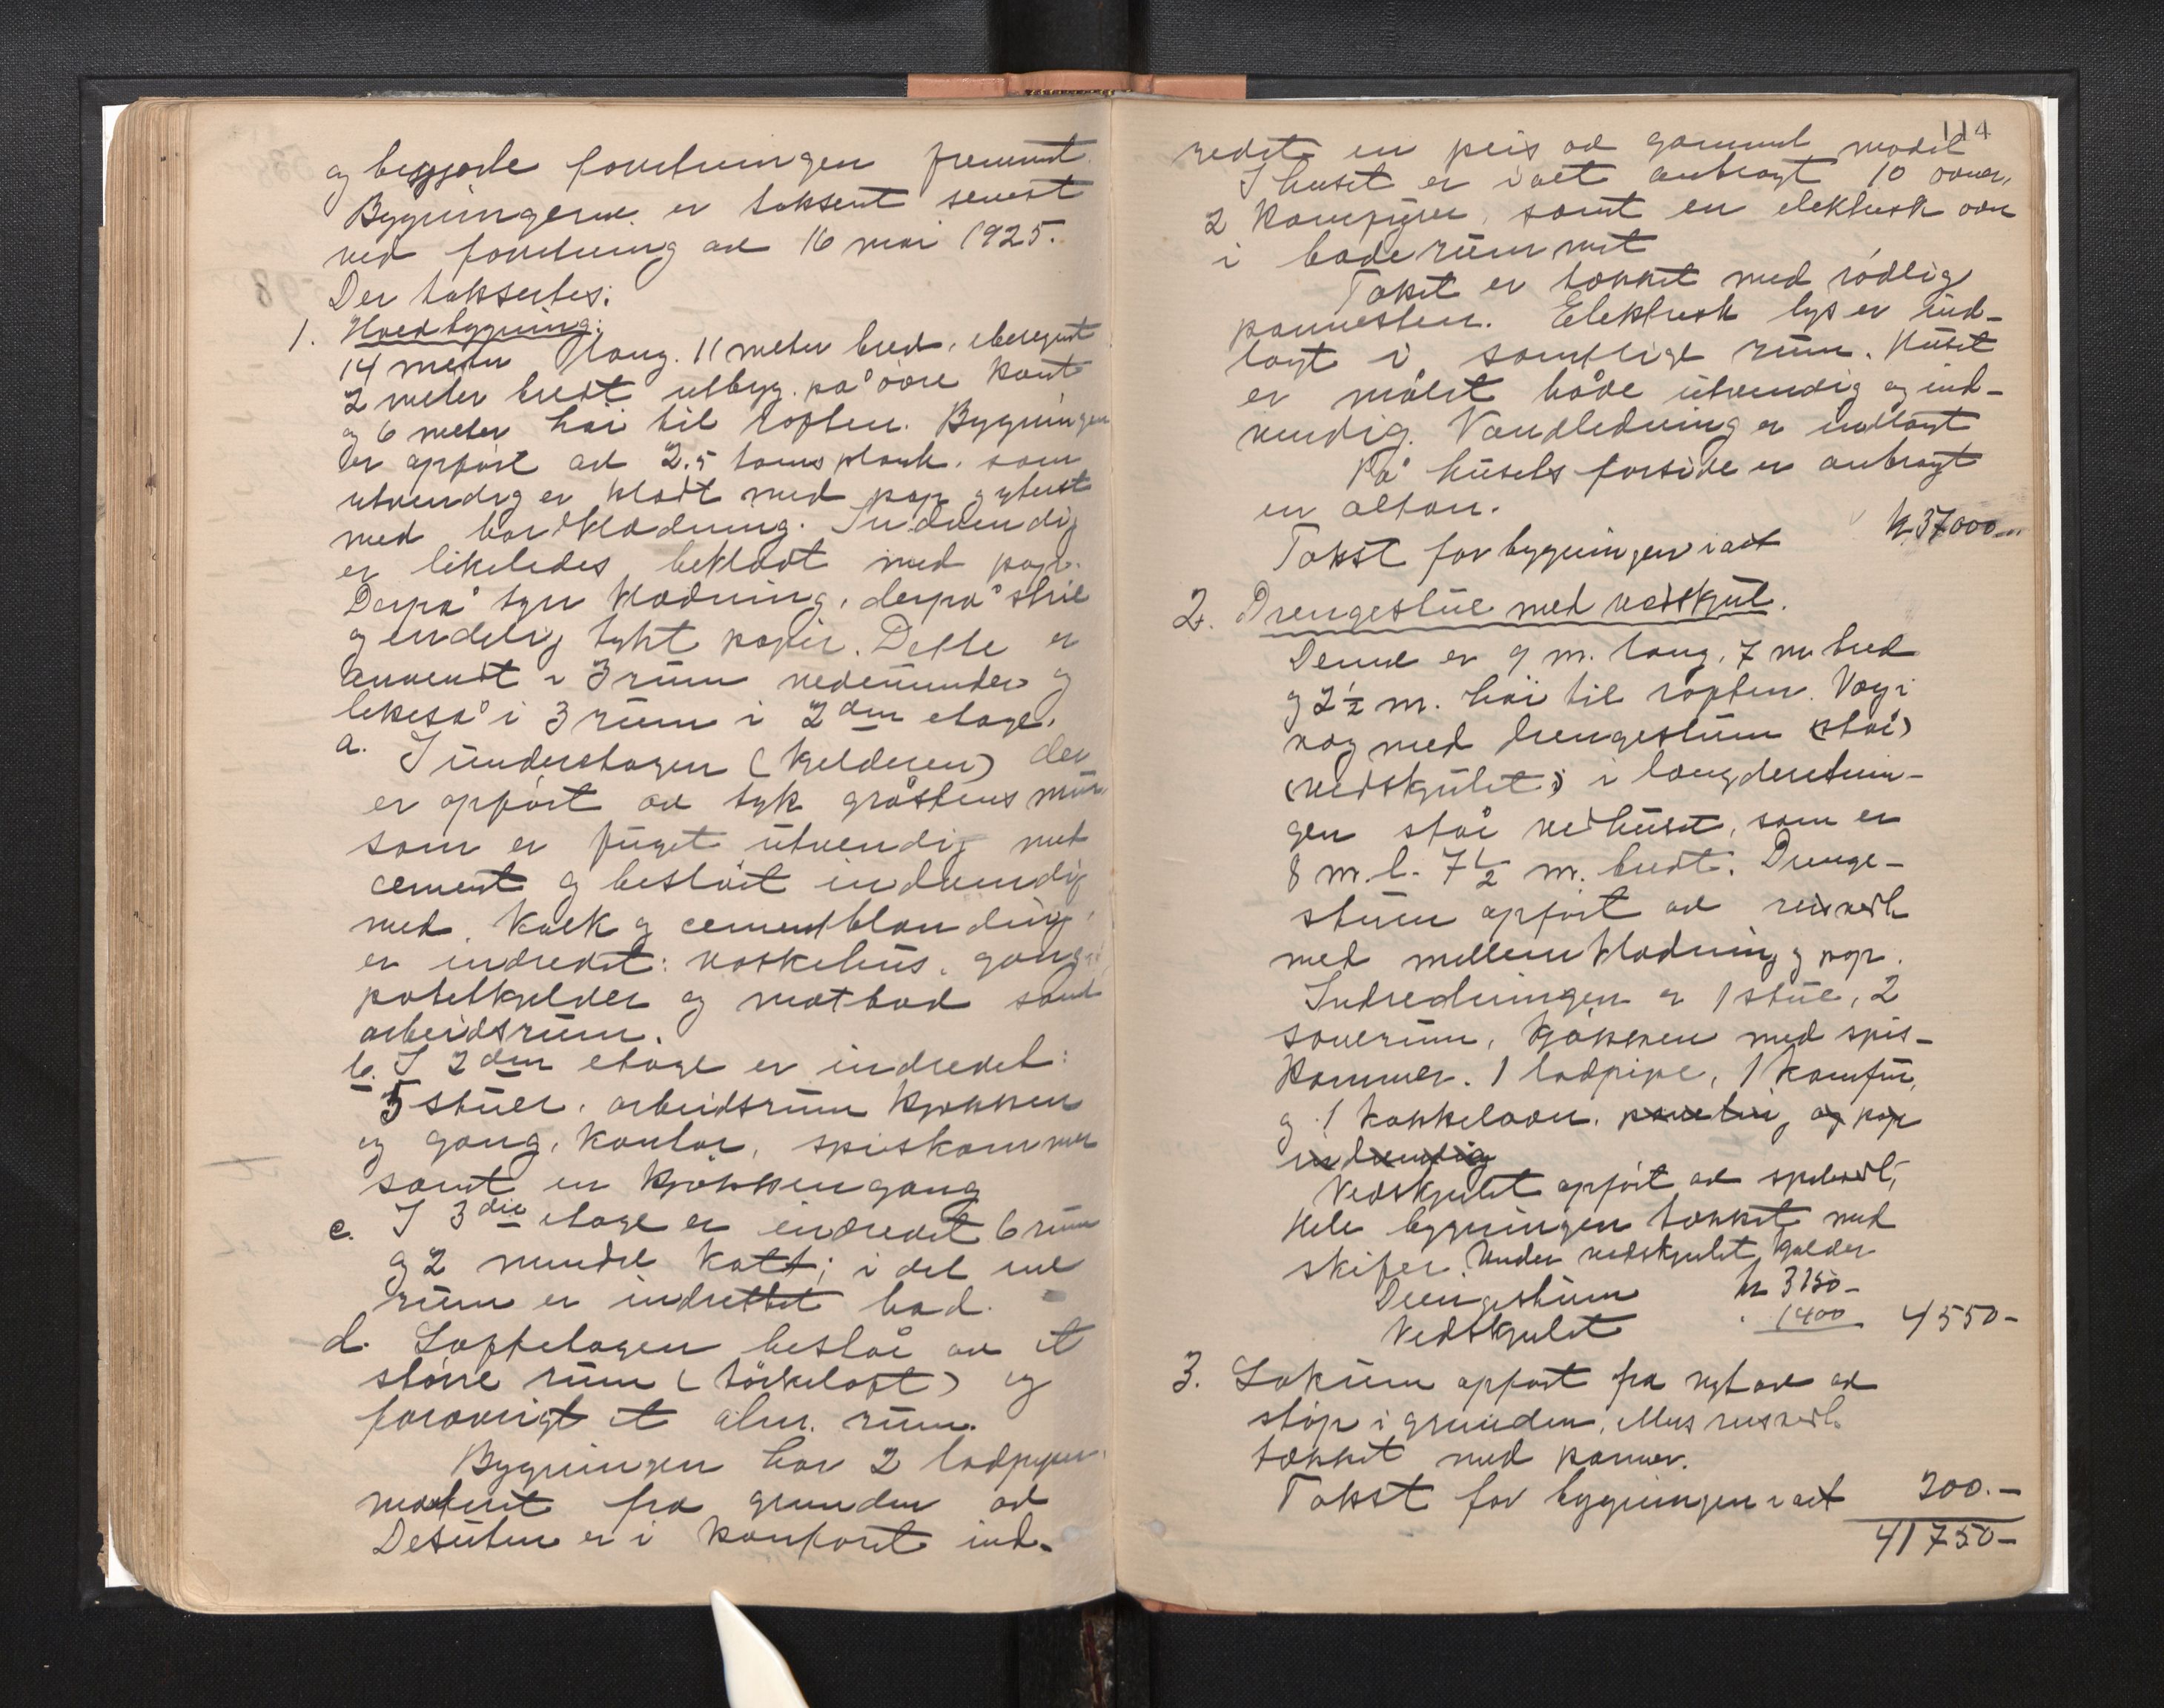 og begjærte forretningen fremmet.
Bygningerne er taksert senest
ved forretning av 16 mai 1925.
Der takseres:
1. Hovedbygning:
14 meter lang. 11 meter bred, iberegnet
2 meter bredt utbyg. på øvre kant
og 6 meter høi til røsten. Bygningen
er opført av 2.5 toms plank. som
utvendig er klædt med pap og ytterst
med bordklædning. Indvendig
er likeledes beklædt med pap.
Derpå tynn klædning, derpå strie
og endelig tykt papir. Dette er
anvendt i 3 rum nedenunder og
likeså i 3 rum i 2den etage.
a. I underetagen (kjelderen) der
er opført av tyk gråstens mur
som er fuget utvendig med
cement og beslåt indvendig
med kalk og cementblanding,
er indredet: vaskehus, gang,
potetkjelder og matbod samt
arbeidsrum.
b. I 2den etage er indredet:
5 stuer, arbeidsrum kjøkken
og gang, kontor, spiskammer
samt en kjøkkengang
c. I 3die etage er indredet 6 rum
og 2 mindre kott; i det ene
rum er indrettet bad.
d. Loftetagen består av et
større rum (tørkeloft) og
forøvrigt et alm. rum.
Bygningen har 2 ladpiper
fra grunden av
Desuten er i kontoret ind-
114
redet en peis av gammel model
I huset er ialt anbragt 10 ovner,
2 komfyrer, samt en elektrisk ovn
i baderummet
Taket er tækket med rødlig
pannesten. Elektrisk lys er ind-
lagt i samtlige rum. Huset
er malet både utvendig og ind-
vendig. Vandledning er indlagt
På husets forside er anbragt
en altan.
Takst for bygningen ialt kr 37000.-
2. Drengestue med vedskjul.
Denne er 9 m. lang, 7 m bred
og 2½ m. høi til røsten. Væg i
væg med drengestuen (står)
(vedskjulet) i længderetnin-
gen står vedhuset, som er
8 m l. 7½ m. bredt. Drenge-
stuen opført av reisverk
med mellemklædning og pap.
Indredningen er 1 stue, 2
soverum, kjøkken med spis-
kammer. 1 ladpipe, 1 komfur,
og 1 kakkelovn. og pap
indvendig
Vedskjulet opført av
Hele bygningen tækket med
skifer. Under vedskjulet kjelder
Drengestuen kr 3150-
Vedskjulet 1400 4550-
3. Lokum opført fra nyt av av
støp i grunden, ellers reisverk.
tækket med panner.
Takst for bygningen ialt 200.-
41750-